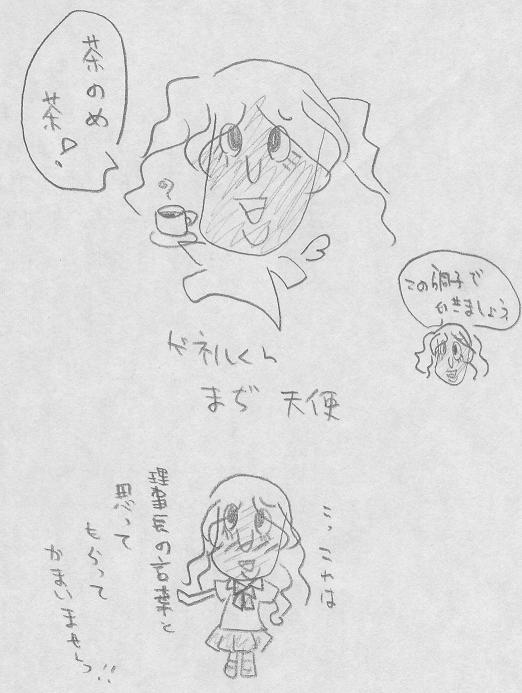 茶のめ
茶♡!
この調子で
いきましょう
ドネルくん
まぢ 天使
こっこれは
理事長の言葉と
思って
もらって
かまいませんっ!!